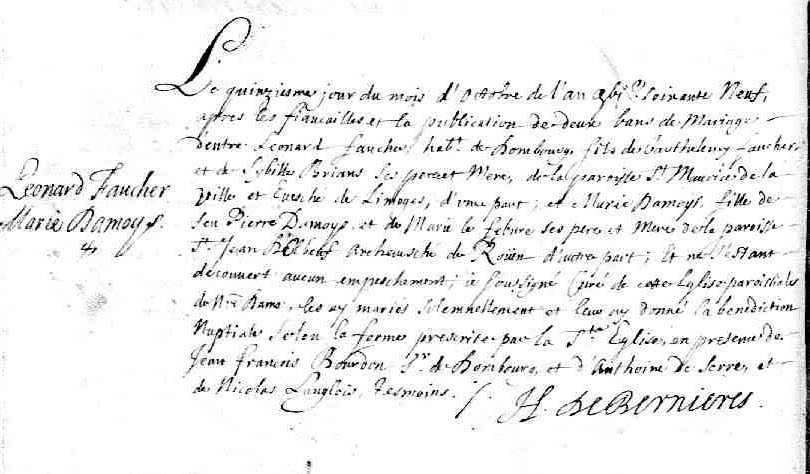 Le quinziesme jour du mois d'Octobre de l'an 16C soixante Neuf,
apres les fiancailles et la publication de deux bans de Mariage
Leonard Faucher
Marie Damoys.
d'entre Leonard faucher habt. de Dombourg, fils de Barthelemy faucher
et de Sybille Brians ses pere et Mere, de la paroisse St. Maurice de la
ville et Evesché de Limoges, d'une part; et Marie Damoys, fille de
feu Pierre Damoys, et de Marie le febure ses pere et Mere de la paroisse
St. Jean Archevesché de Roüen d'autre part; Et ne s'estant
découvert aucun empeschement; ie soussigné Curé de cette Eglise paroissiale
de Nre Dame les ay mariés solemnellement et leur ay donné la benediction
Nuptiale selon la forme prescrite par la Ste Eglise, en presence de
Jean francois Bourdon Sr de Dombourg, et d'Anthoine de Serre, et
de Nicolas Langlois, Tesmoins.
H. de Bernieres.